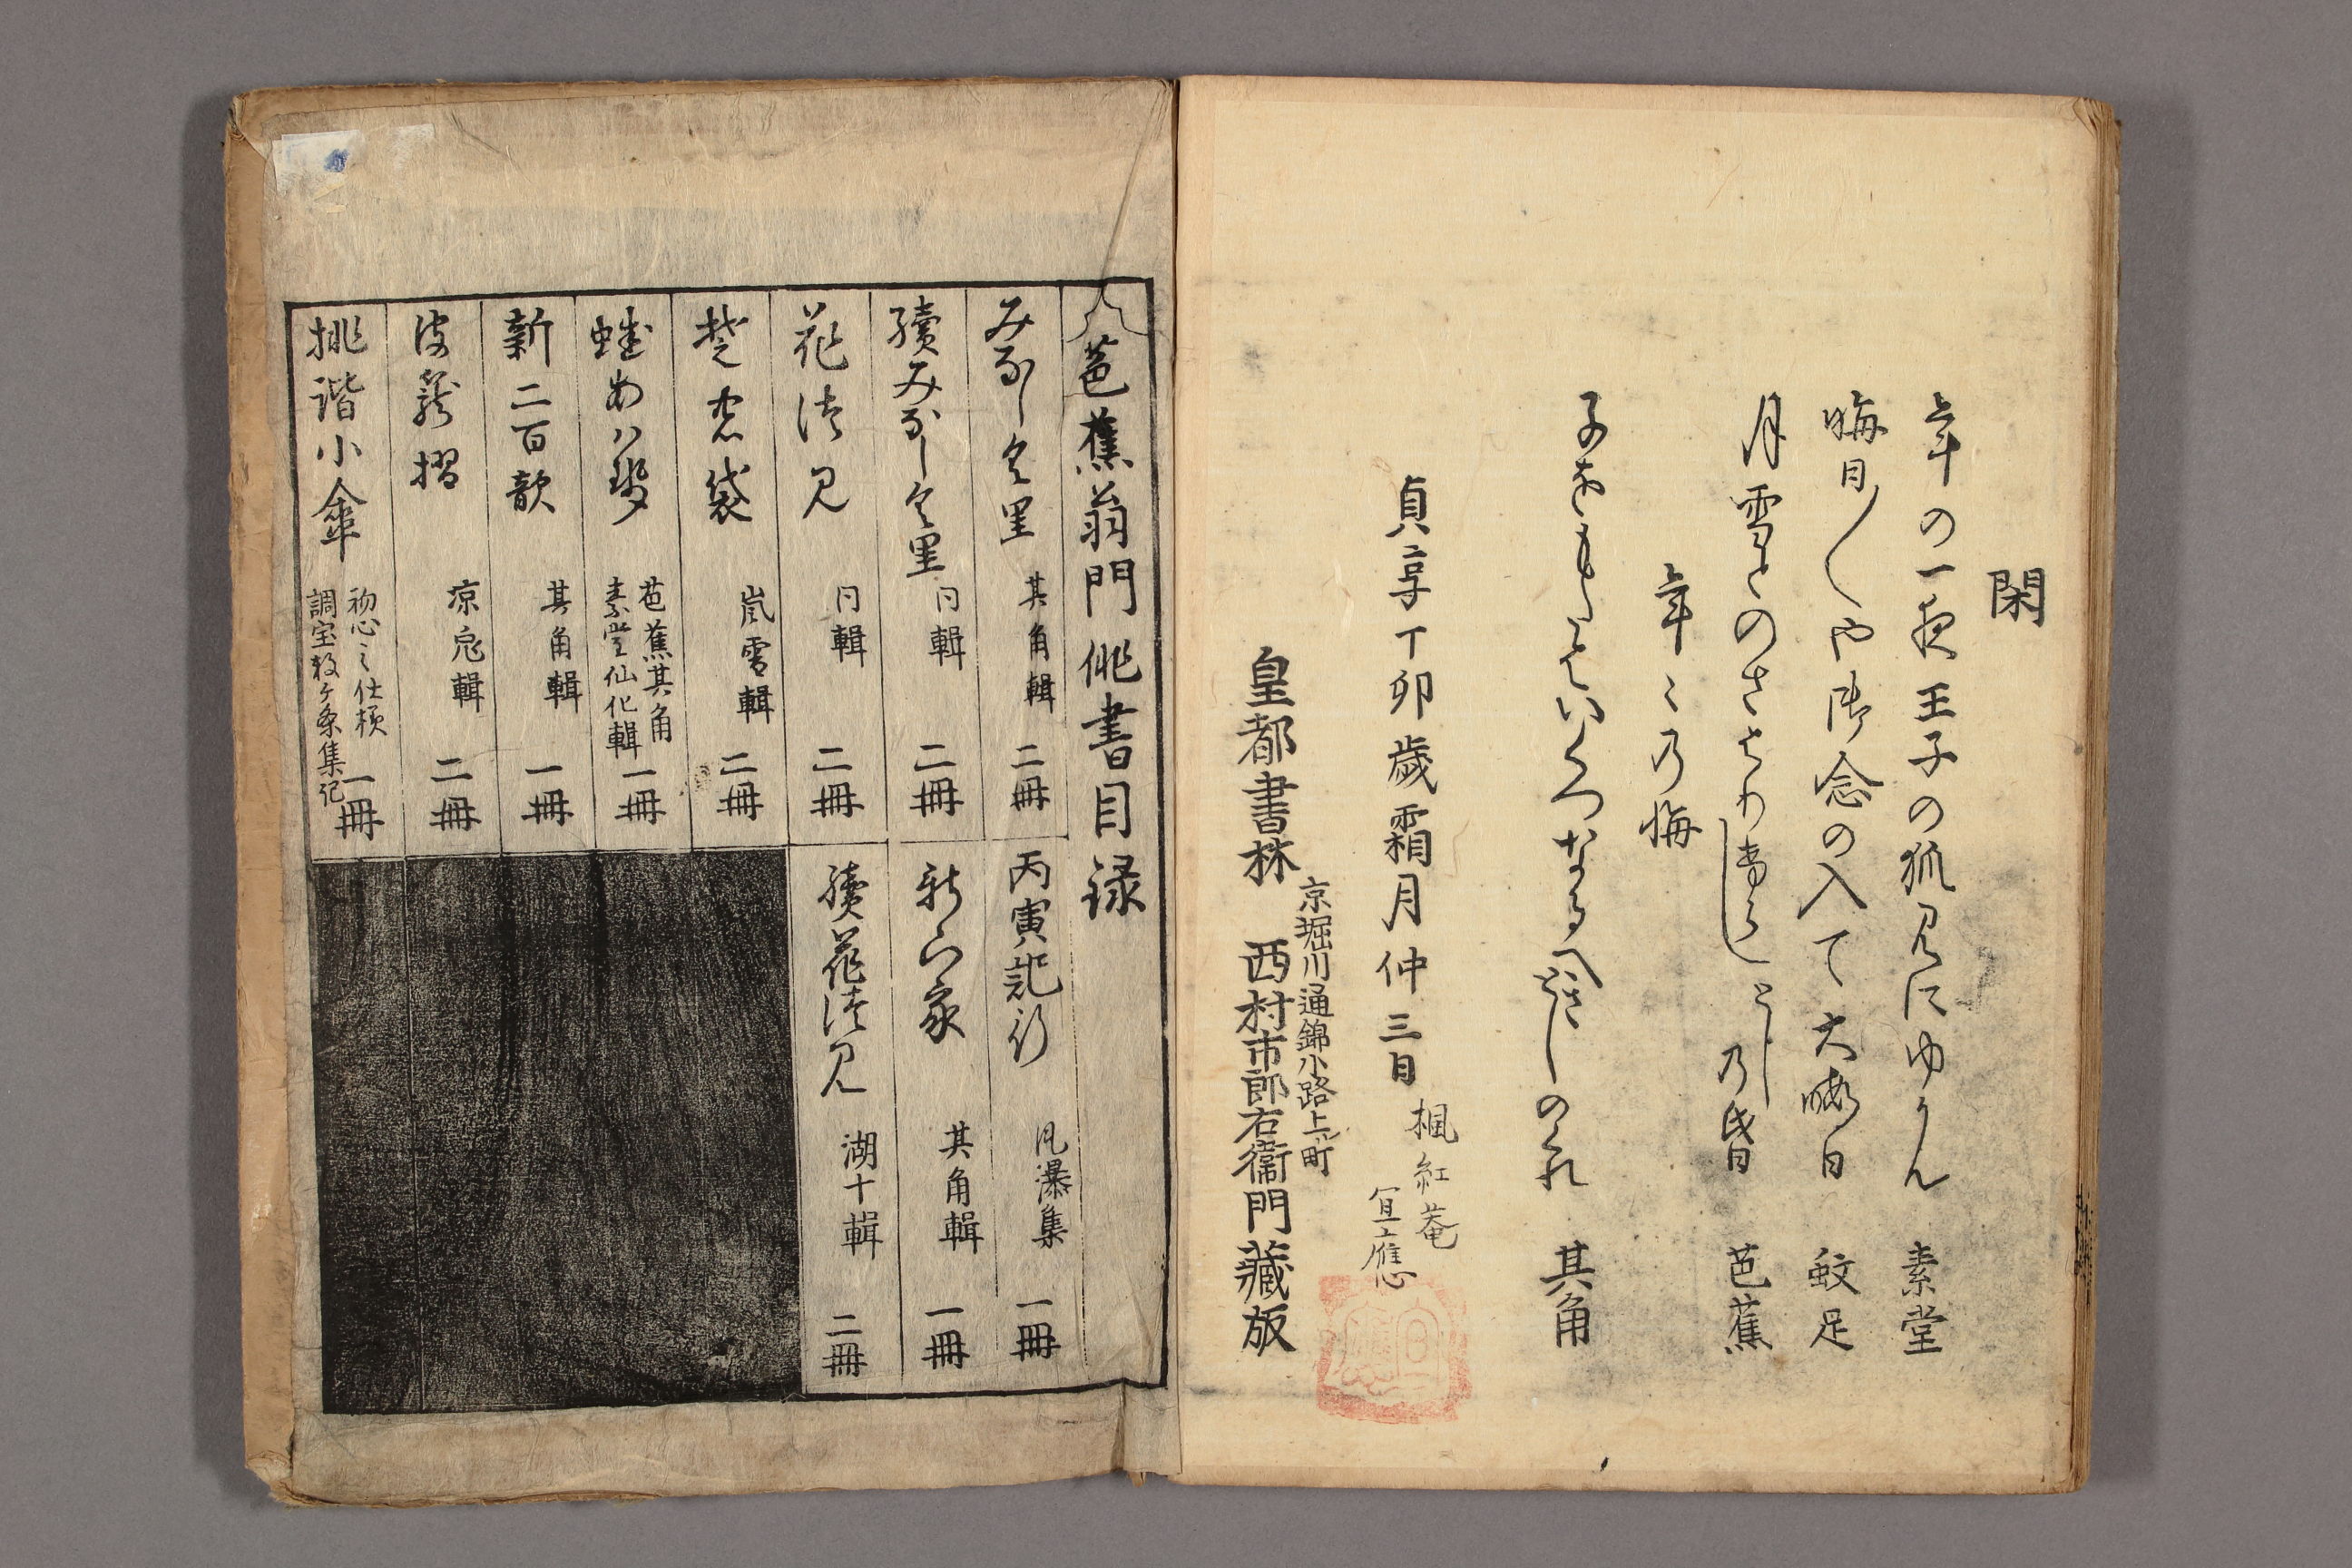 閑
年の一夜王子の狐見にゆかん 素堂
晦日〱や御念の入て大晦日 蚊足
月雪とのさはりけらしとしの昏 芭蕉
年ミ乃悔
子をもたはいくつなるへきとしのくれ 其角
貞享丁卯歳霜月仲三日
楓紅菴
宜應
京堀川通錦小路上ル町
皇都書林 西村市郎右衞門藏版
芭蕉翁門俳書目録
みなし久里 其角輯 二冊
丙寅記行 風瀑集 一冊
續みなし久里 同輯 二冊
新山家 其角輯 一冊
花津見 同輯 二冊
續花津見 湖十輯 二冊
其袋 嵐雪輯 二冊
蛙あハせ 芭蕉其角
素堂仙化輯 一冊
新二百韻 其角輯 一冊
凉菟輯 二冊
誹諧小傘 初心之仕様
調宝数ケ条集記 一冊